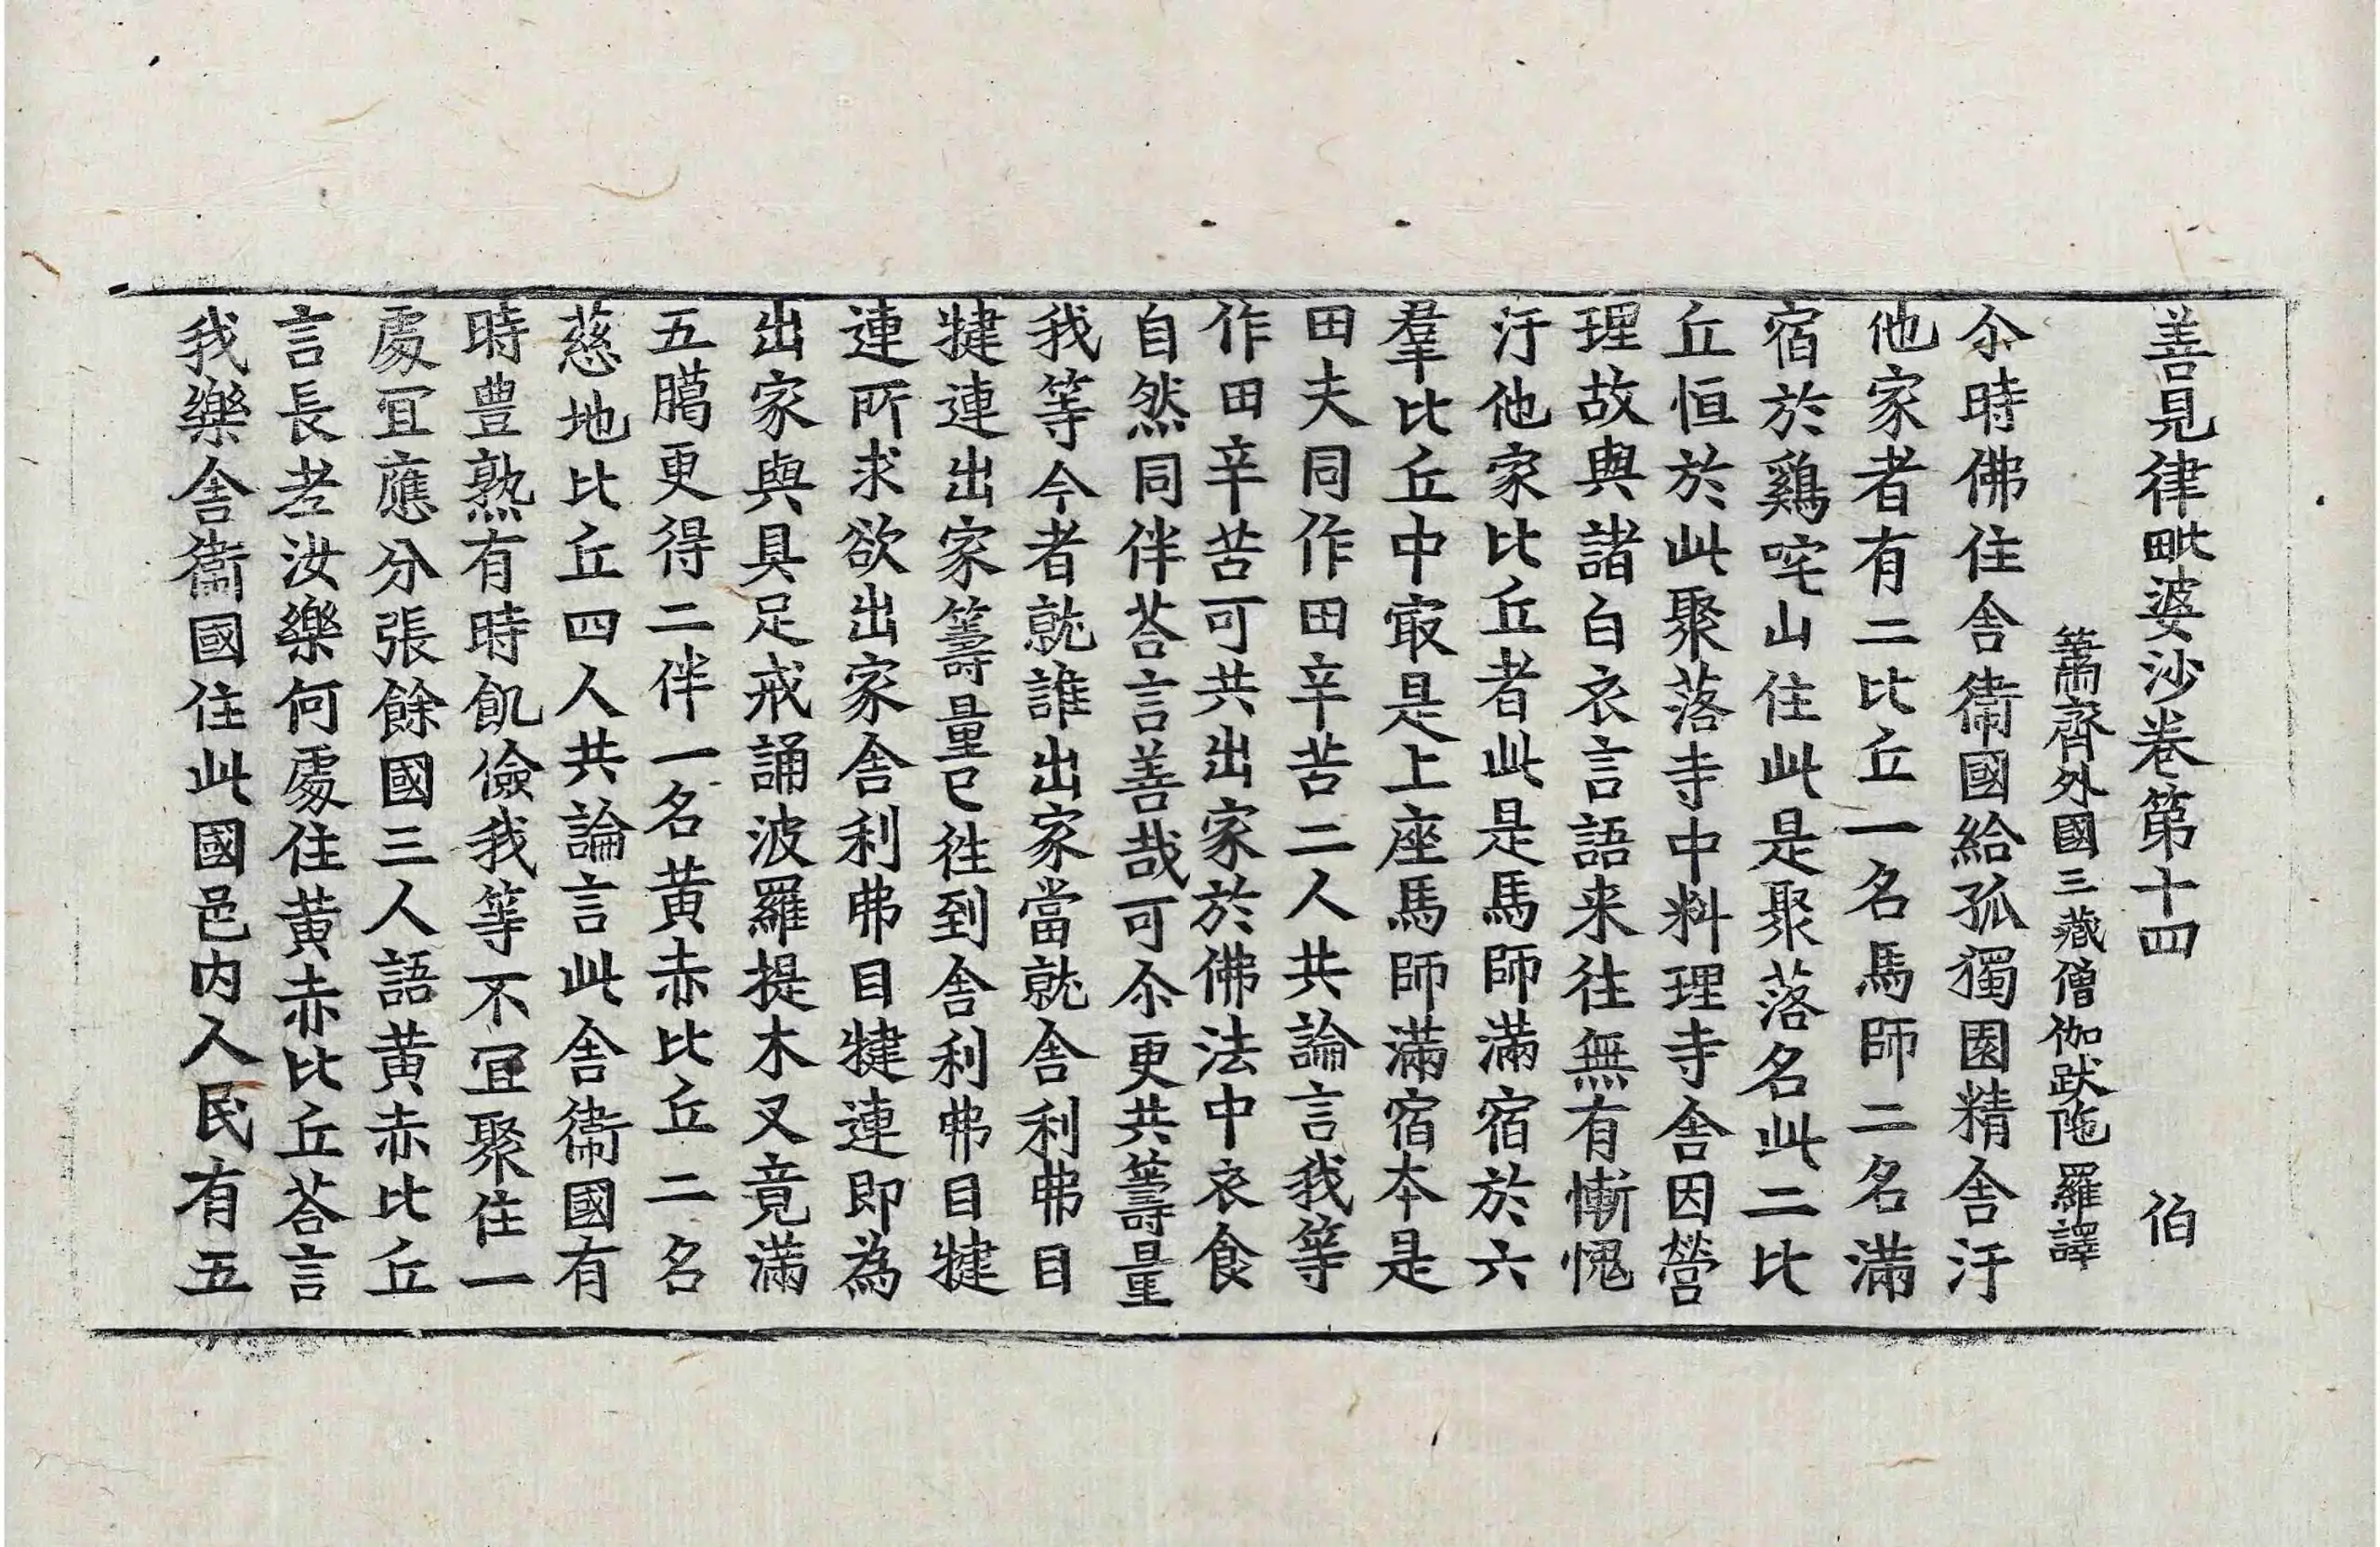 善見律毗婆沙卷第十四 伯
蕭齊外國三藏僧伽跋陁羅譯
尒時佛住舍衞國給孤獨園精舍汙
他家者有二比丘一名馬師二名滿
宿於鷄咤山住此是聚落名此二比
丘恒於此聚落寺中料理寺舍因營
理故與諸白衣言語来往無有慚愧
汙他家比丘者此是馬師滿宿於六
羣比丘中㝡是上座馬師滿宿本是
田夫同作田辛苦二人共論言我等
作田辛苦可共出家於佛法中衣食
自然同伴荅言善哉可尒更共籌量
我等今者就誰出家當就舍利弗目
犍連出家籌量已徃到舍利弗目犍
連所求欲出家舍利弗目犍連即為
出家與具足戒誦波羅提木叉竟滿
五臈更得二伴一名黄赤比丘二名
慈地比丘四人共論言此舍衞國有
時豊熟有時飢儉我等不冝聚住一
處冝應分張餘國三人語黄赤比丘
言長老汝樂何處住黄赤比丘荅言
我樂舍衞國住此國邑内人民有五